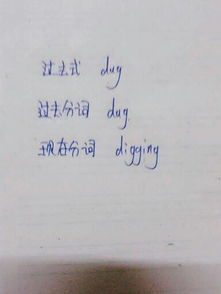 过去式 dug
过去分词 dug
现在分词 digging